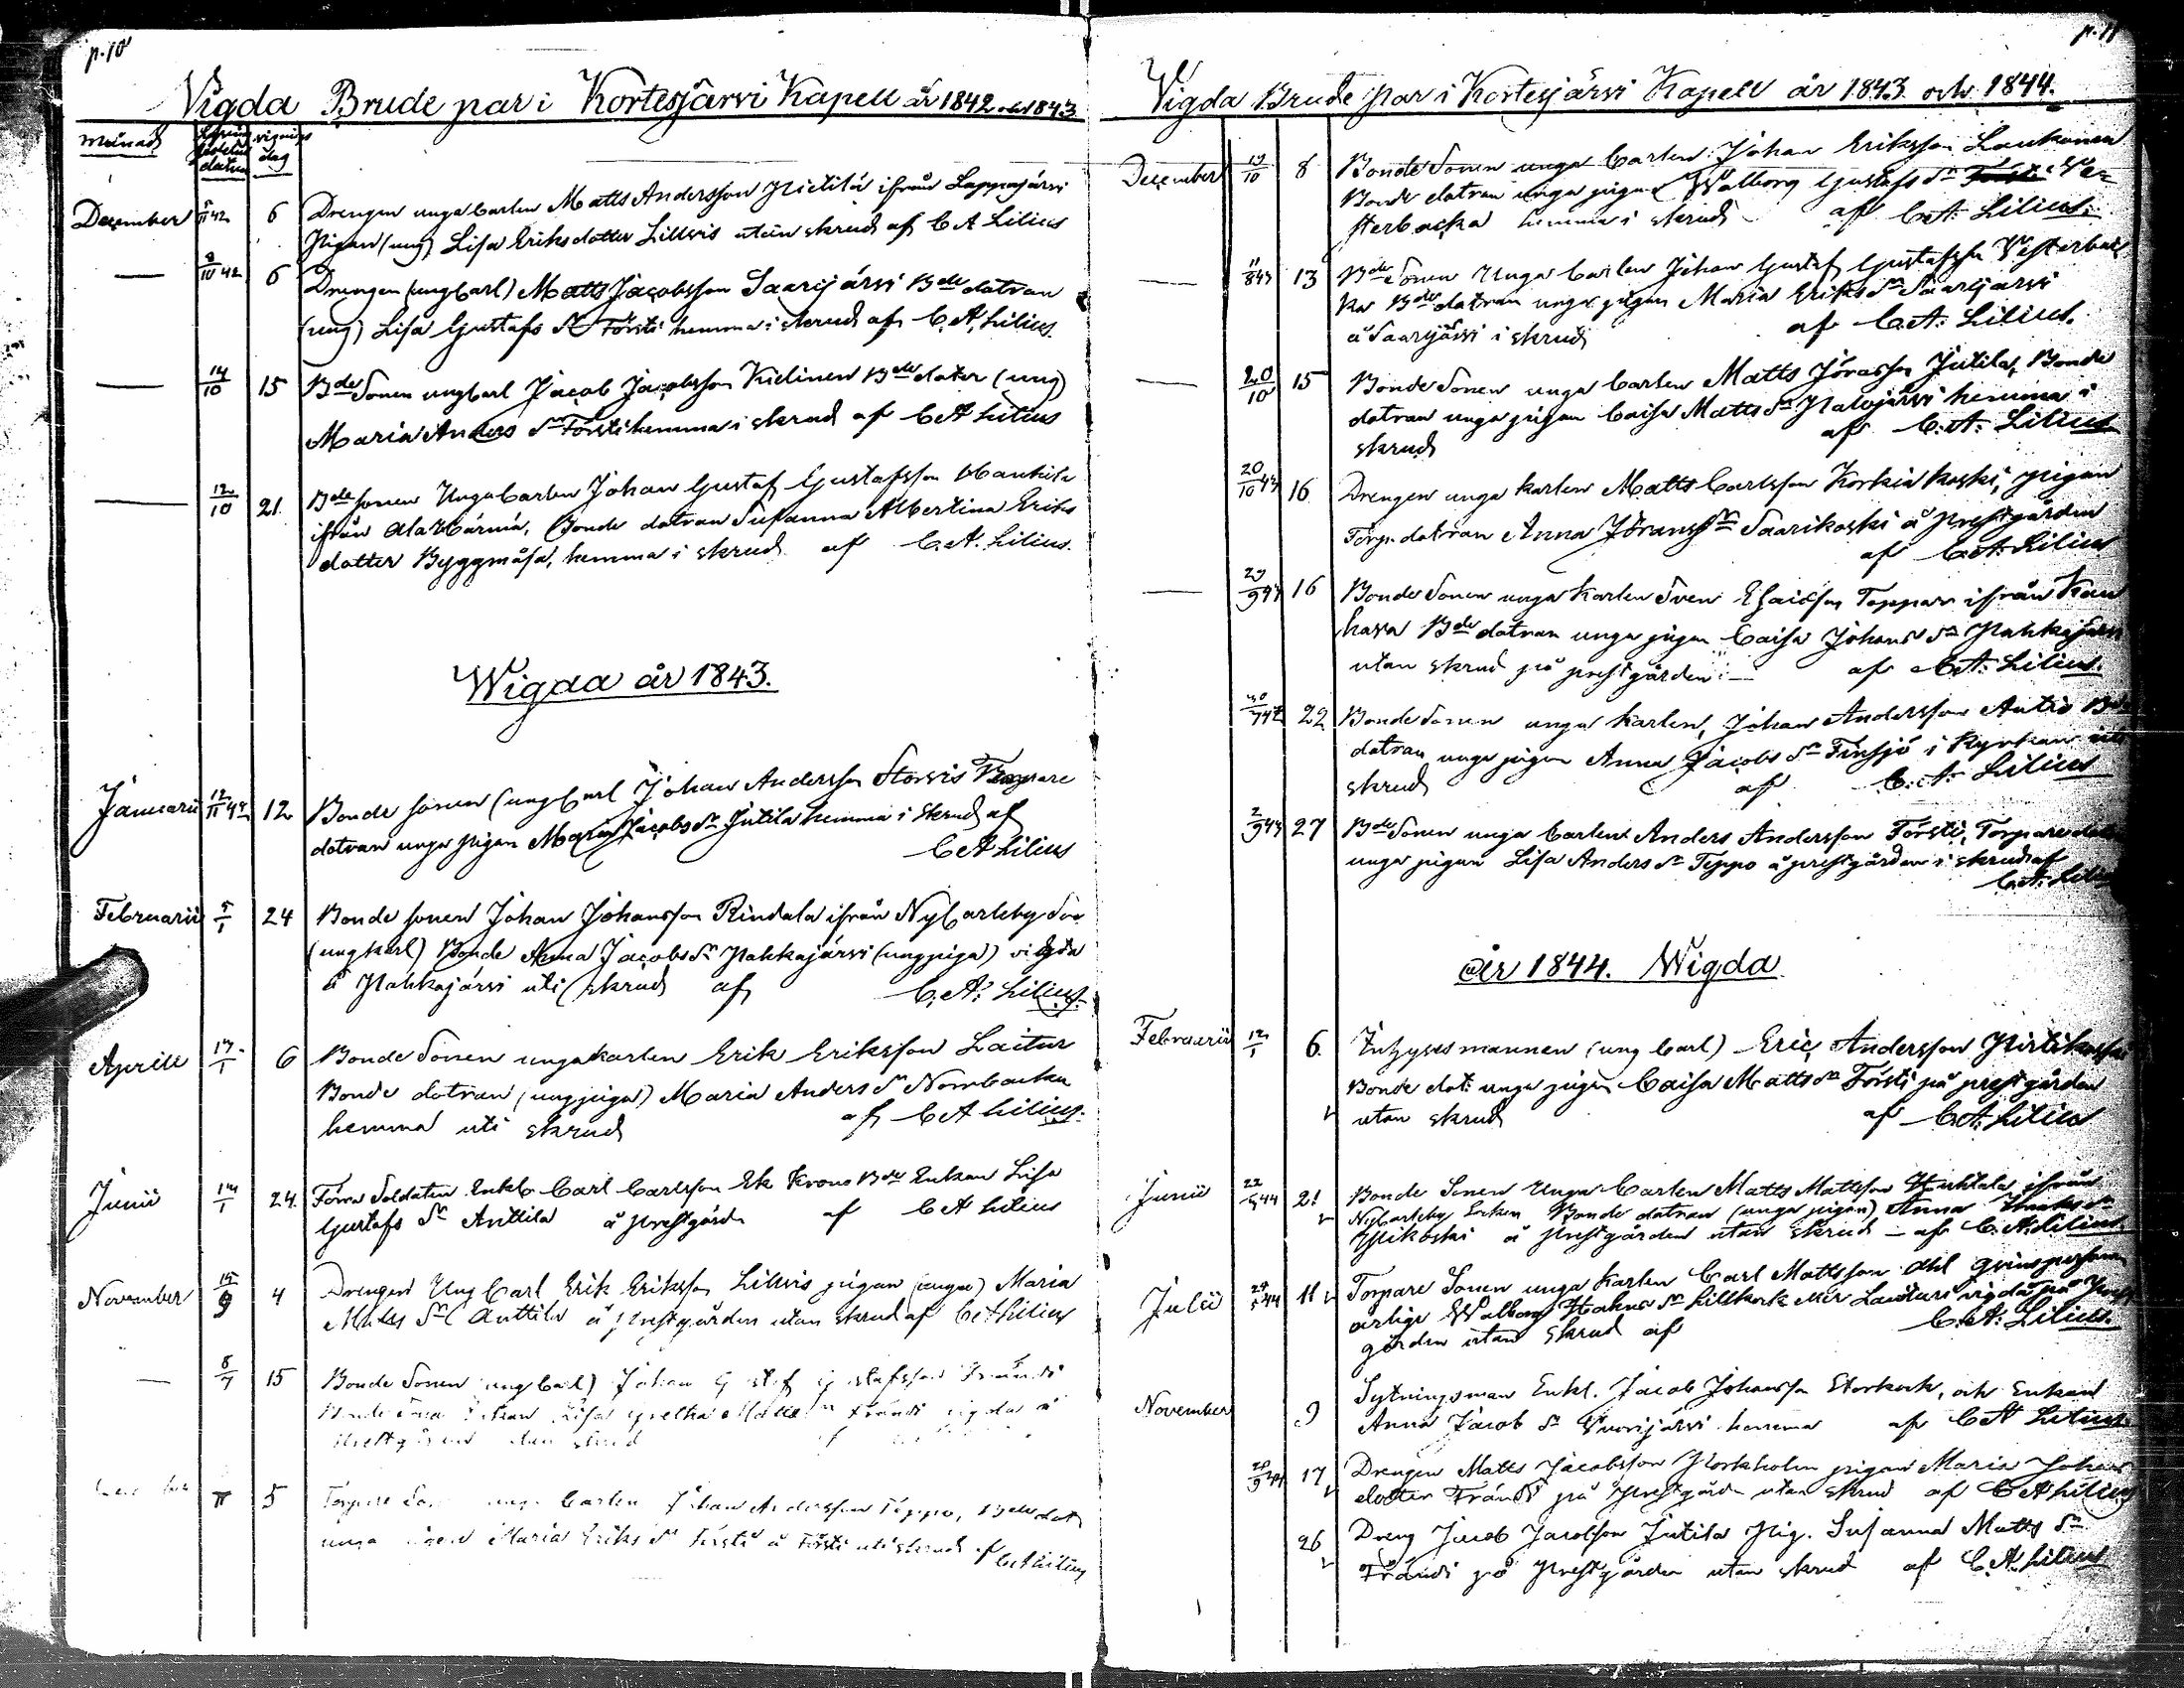 p. 10
Vigda Brude par i Kortesjärvi Kapell år 1842 och 1843
Månad
Lysnings sedelns datum
vignings dag
December 42 6 Drengen unga Carlen Matts Andersson Pietilä ifrån Lappajärvi
Pigan (ung) Lisa Eriksdotter Lillvis utan skrud af C A Lilius
— 9/10 42 6 Drengen (ung Carl) Matts Jacobsson Saarijärvi Bde dotran
(ung) Lisa Gustafs Dr Försti hemma i skrud af C. A. Lilius.
— 14/10 15 Bde Sonen ung Carl Jacob Jacobsson Kielinen Bde doter (ung)
Maria Anders Dr Försti hemma i skrud af C A Lilius
— 12/10 21. Bde sonen Unga Carlen Johan Gustaf Gustafsson
ifrån Ala Härmä, Bonde dotran Susanna Albertina Eriks
dotter Byggmäsa, hemma i skrud af C. A. Lilius.
Wigda år 1843.
Januarii 12/11 42 12 Bonde sonen (ung Carl Johan Andersson Storvis Torpare
dotran unga pigan Maria Jacobs Dr Jutila hemma i skrud af
C A Lilius
Februarii 5/1 24 Bonde sonen Johan Johansson Rindala ifrån NyCarleby Son
(ung karl) Bonde Anna Jacobs Dr Pahkajärvi (ungpiga) vigda
å Pahkajärvi uti skrud af C. A. Lilius.
Aprill 6 Bonde Sonen unga karlen Erik Eriksson Laitur
Bonde dotran (ungpiga) Maria Anders Dr Norrbacka
hemma uti skrud af C A Lilius.
Junii 24. Förra Soldaten Enkl Carl Carlsson Ek Krono Bde Enkan Lisa
Gustafs Dr Anttila å Prestgårdn af C A Lilius
November 15/9 4 Drengen Ung Carl Erik Eriksson Lillvis pigan (unga) Maria
Matts Dr Anttila å Prestgården utan skrud af C A Lilius
— 15 Bonde Sonen (ung Carl) Johan Gustaf Gustafsson Frändi
Lisa Gretha Matts Dr Frändi vigda å
Prestgården utan skrud
5 Torpare Son unga Carlen Johan Andersson Teppo, Bde dot
unga pigan Maria Eriks Dr Försti å Försti uti skrud af C A Lilius
p. 11
Vigda Brude par i Kortesjärvi Kapell år 1843 och 1844.
December 19/10 8 Bonde Sonen unga Carlen Johan Eriksson Laukonen
Bonde dotran unga pigan Walborg Gustafs Dr Ves
terbacka hemma i skrud af C. A. Lilius.
— 11/8 43 13 Bde Sonen Unga Carlen Johan Gustaf Gustafsson Vesterbac
ka Bde dotran unga pigan Maria Eriks Dr Saarijärvi
å Saarijärvi i skrud af C. A. Lilius.
— 20/10 15 Bonde Sonen unga Carlen Matts Jöransson Jutila, Bonde
dotran unga pigan Caisa Matts Dr Palojärvi hemma i
skrud af C. A. Lilius
20/10 43 16 Drengen unga karlen Matts Carlsson Korkiakoski, pigan
Torp. dotran Anna Jörans Dr Saarikoski å Prestgården
af C. A. Lilius
— 29/9 43 16 Bonde Sonen unga Karlen Sven Esaiesson Toppar ifrån Kau
hava Bde dotran unga pigan Caisa Johans Dr Pahkajärvi
utan skrud på prestgården — af C. A. Lilius.
22 Bonde Sonen unga Karlen, Johan Andersson Antio Bde
dotran unga pigan Anna Jacobs Dr Finsjö i Kyrkan uti
skrud af C. A. Lilius
2/9 43 27 Bde Sonen unga Carlen Anders Andersson Försti, Torpare
unga pigan Lisa Anders Dr Teppo å prestgården i skrud af
C. A. Lilius
år 1844. Wigda
Februarii 12/1 6. Inhyses mannen (ung Carl) Eric Andersson
Bonde dot: unga pigan Caisa Matts Dr Försti på prestgården
utan skrud af C. A. Lilius
Junii 22/5 44 21 Bonde Sonen Unga Carlen Matts Mattsson Huhtala ifrån
NyCarleby Socken Bonde dotran (unga pigan) Anna
Ylikoski å Prestgården utan skrud — af C. A. Lilius
Julii 44 11 Torpare Sonen unga Karlen Carl Mattsson Ahl qvinsperson
ärlige Walborg Johans Dr Lillkork eller Laituri vigda på Prest
gården utan skrud af C. A. Lilius.
November 9 Sytningsman Enkl. Jacob Johansson Storkork, och Enkan
Anna Jacob Dr Vuorijärvi hemma af C A Lilius
17 Drengen Matts Jacobsson Storkholm pigan Maria Johans
dotter Frändi på Prestgårdn utan skrud af C A Lilius
26 Dreng Jacob Jacobsson Jutila Pig. Susanna Matts Dr
Frändi på Prestgården utan skrud af C. A. Lilius